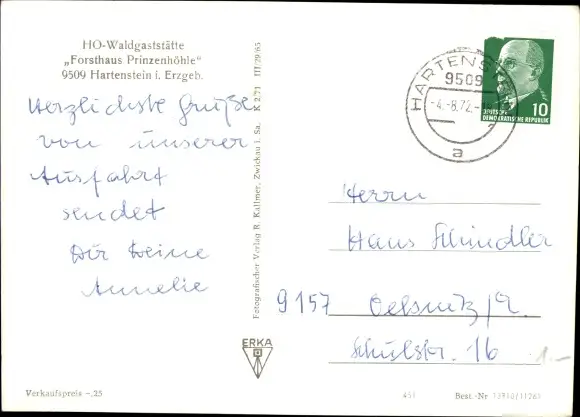 HO-Waldgaststätte
„Forsthaus Prinzenhöhle"
9509 Hartenstein i. Erzgeb.
Herzlichste Grüße
von unserer
Ausfahrt
sendet
Dir Deine
Annelie
Fotografischer Verlag R. Kallmer, Zwickau i. Sa. K 2/71 III/29/65
ERKA
Verkaufspreis -.25
HARTENSTEIN
9509
-4.-8.72.-
a
10
DEUTSCHE
DEMOKRATISCHE REPUBLIK
Herrn
Hans Schindler
9157 Oelsnitz/E.
Schulstr. 16
1.-
451 Best.-Nr